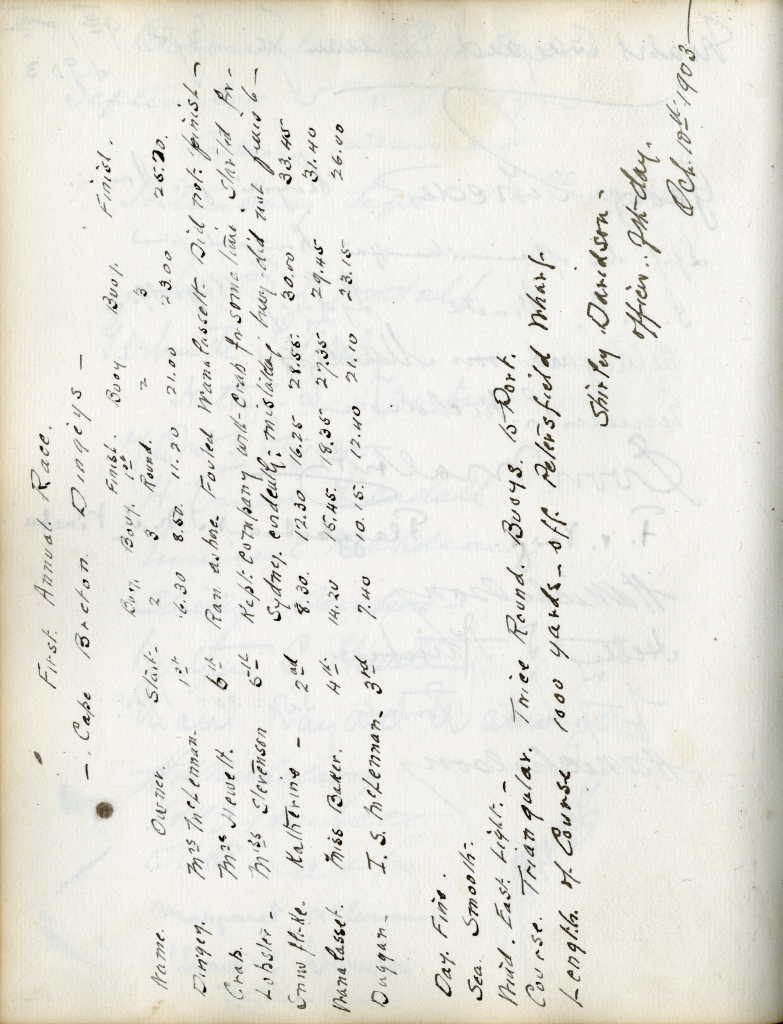 First Annual Race.
— Cape Breton Dingeys —
Name. Owner. Start. Buoy 2 Buoy. 3 Finish. 1st Round. Buoy 2 Buoy. 3 Finish.
Dingey. Mrs McLennan. 1st 6.30 8.50. 11.20 21.00 23.00 25.20.
Crab. Mrs Hewett. 6th Ran ashore. Fouled Manalassett. Did not finish —
Lobster — Miss Stevenson 5th Kept company with Crab for some time. Started for
Sydney, evidently mistaking buoy. did not finish —
Snowflake. Katherine — 2nd 8.30. 12.30 16.25 28.55. 30.00 33.45
Manalasset. Miss Baker. 4th 14.20 15.45. 18.35 27.35 29.45 31.40
Duggan — I. S. McLennan — 3rd 7.40 10.15. 12.40 21.10 23.15 26.00
Day. Fine.
Sea. Smooth.
Wind. East. Light. —
Course. Triangular. Twice Round. Buoys to Port.
Length of Course 1000 yards — off Petersfield Wharf.
Shirley Davidson —
Officer of the day.
Oct. 10th 1903 —